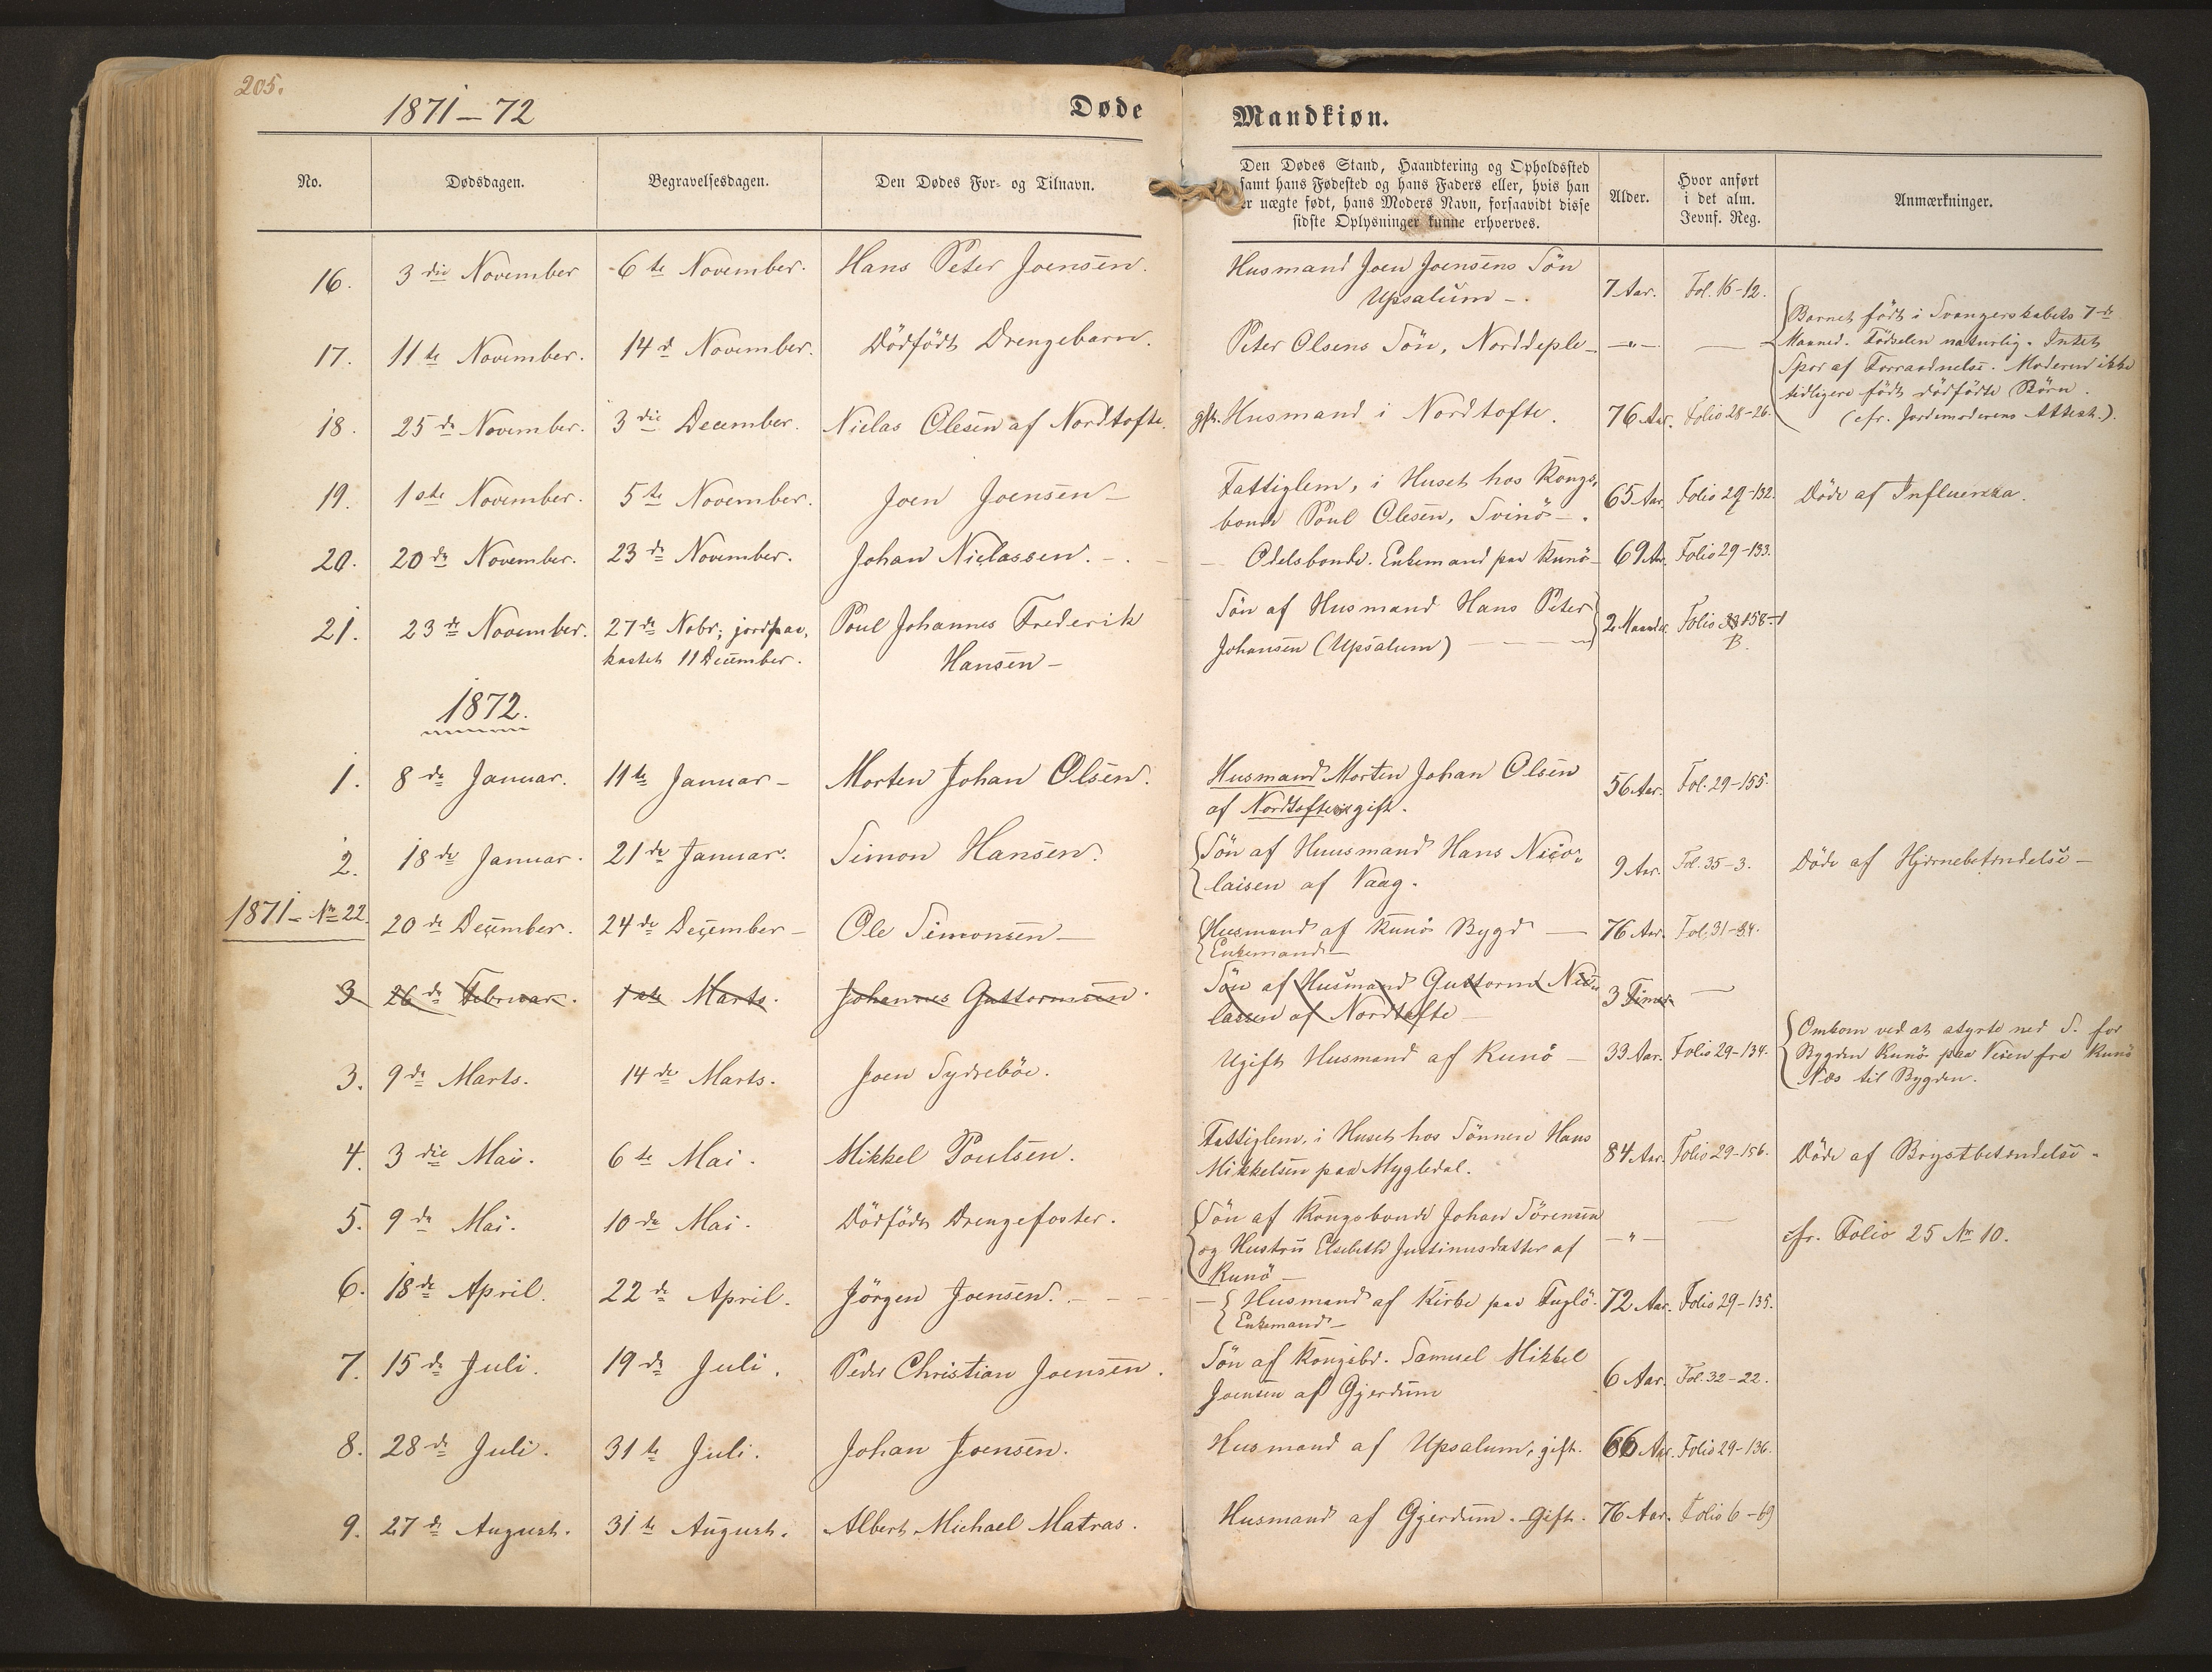 205.
1871 – 72
Døde
Mandkiøn.
No.
Dødsdagen.
Begravelsesdagen.
Den Dødes For- og Tilnavn.
Den Dødes Stand, Haandtering og Opholdssted
samt hans Fødested og hans Faders eller, hvis han
er uægte født, hans Moders Navn, forsaavidt disse
sidste Oplysninger kunne erhverves.
Alder.
Hvor anført
i det alm.
Jevnf. Reg.
Anmærkninger.
16. 3die November 6te November. Hans Peter Joensen. Husmand Joen Joensens Søn
Upsalum –. 7 Aar. Fol. 16–12.
17. 11te November. 14d November. Dödfödt Drengebarn. Peter Olsens Sön, Norddeple – –"– —
Barnet födt i Svangerskabets 7de
Maaned. Födselen naturlig. Intet
Spor af Forraadnelse. Moderen ikke
tidligere födt dödfödte Börn.
(cfr. Jordemoderens Attest.).
18. 25de November. 3die December. Niclas Olesen af Nordtofte. gft. Husmand i Nordtofte. 76 Aar. Folio 28–26.
19. 1ste November. 5te November. Joen Joensen – Fattiglem, i Huset hos Kongs-
bonde Poul Olesen, Svinö –. 65 Aar. Folio 29–132. Döde af Influenza.
20. 20de November. 23de November. Johan Niclassen. –. – Odelsbonde. Enkemand paa Kunö – 69 Aar. Folio 29–133.
21. 23de November. 27de Nobr; jordpaa-
kastet 11 December. Poul Johannes Frederik
Hansen – Sön af Husmand Hans Peter
Johansen (Upsalum) 2 Maaneder. Folio 158–1
B.
1872.
1. 8de Januar. 11te Januar – Morten Johan Olsen. Husmand Morten Johan Olsen
af Nordtofte gift. 56 Aar. Fol. 29–155.
2. 18de Januar. 21de Januar. Simon Hansen. Sön af Huusmand Hans Nico-
laisen af Vaag. 9 Aar. Fol. 35–3. Döde af Hjernebetændelse –
1871 – Nr 22. 20de December. 24de December – Ole Simonsen – Husmand af Kunö Bygd –
Enkemand – 76 Aar. Fol. 31–84.
3 26de Februar. 1ste Marts. Johannes Guttormsen. Sön af Husmand Guttorm Nic-
lassen af Nordtofte – 3 Timer —
3. 9de Marts. 14de Marts. Joen Sydreböe. Ugift Husmand af Kunö – 33 Aar. Folio 29–134.
Omkom ved at styrte ned S. for
Bygden Kunö paa Veien fra Kunö
Næs til Bygden.
4. 3die Mai. 6te Mai. Mikkel Poulsen. Fattiglem, i Huset hos Sönnen Hans
Mikkelsen paa Mygledal. 84 Aar. Folio 29–156. Döde af Brystbetændelse.
5. 9de Mai. 10de Mai. Dödfödt Drengefoster. Sön af Kongsbonde Johan Sörensen
og Hustru Elsebeth Justinusdatter af
Kunö – –"– — cfr. Folio 25 Nr 10.
6. 18de April. 22de April. Jörgen Joensen. – Husmand af Kirke paa Fuglö.
Enkemand – 72 Aar. Folio 29–135.
7. 15de Juli. 19de Juli. Peder Christian Joensen. Sön af Kongsbd. Samuel Mikkel
Joensen af Gjerdum 6 Aar. Fol. 32–22.
8. 28de Juli. 31te Juli. Johan Joensen. Husmand af Upsalum, gift. 66 Aar. Folio 29–136.
9. 27de August. 31te August. Albert Michael Matras. Husmand af Gjerdum. Gift. 76 Aar. Folio 6–69